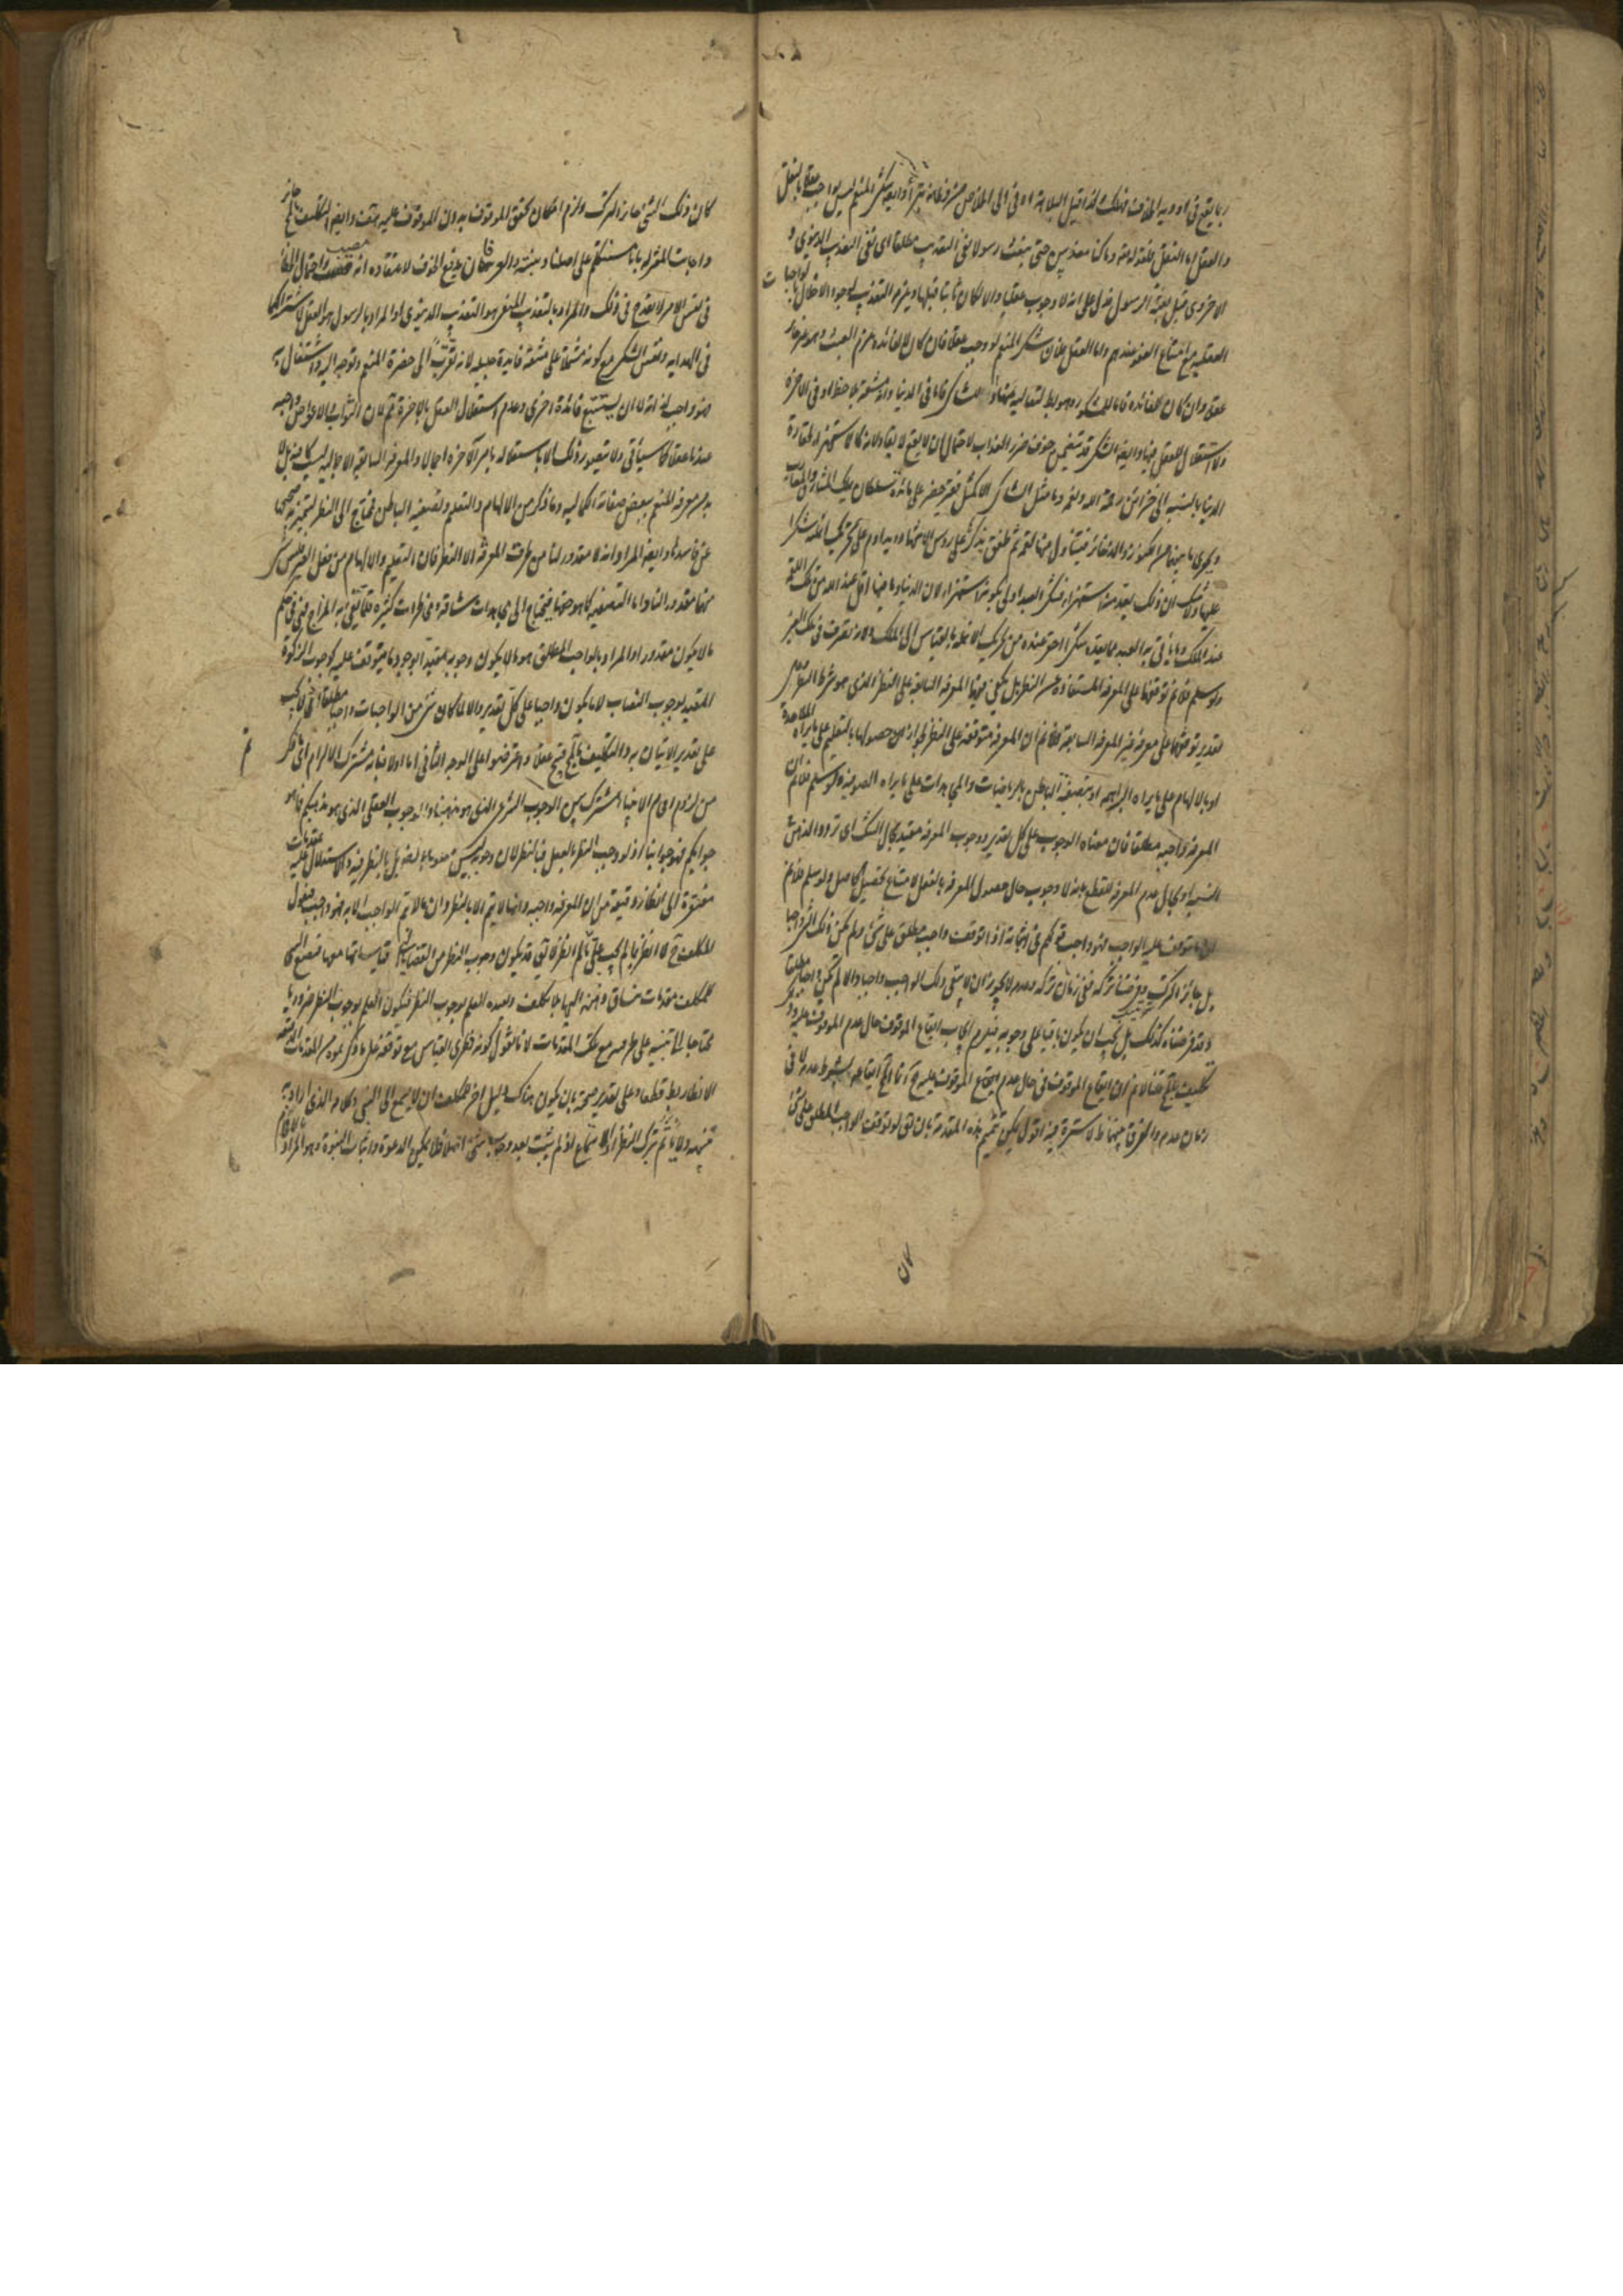 ربما يقع في اودية الخوف فهلك ولذا قيل البلاهة ادنى الى الخلاص من فطانة بتراء وايضا شكر المنعم ليس بواجب عقلا بالنقل
والعقل اما النقل فلقوله تعالى وما كنا معذبين حتى نبعث رسولا نفى التعذيب مطلقا اى نفى التعذيب الدنيوى و
الاخروى قبل بعثة الرسول فدل على انه لا وجوب عقليا والا لكان ثابتا قبلها ويلزم التعذيب لوجود الاخلال بالواجبات
العقلية مع امتناع العفو عندهم واما العقل فلان شكر المنعم لو وجب عقلا فان كان لا لفائدة لزم العبث وهو غير جائز
عقلا وان كان لفائدة فاما للمشكور وهو بط لتعاليه عنها او للشاكر فاما في الدنيا وانه مشقة بلا حظ او في الاخرة
ولا استقلال للعقل فيها وايضا الشكر قد يتضمن خوف ضرر العذاب لاحتمال ان لا يقع لايقا ولانه كالاستهزاء لحقارة
الدنيا بالنسبة الى خزائن رحمة الله ونعمه وما مثل الشاكر الا كمثل فقير حضر على مائدة سلطان يملك المشارق والمغارب
ويحوى ما بينهما من الكنوز والدفائن فيتناول منها لقمة ثم طفق يذكر على رؤس الاشهاد ويداوم على تحريك انملة شكرا
عليها ولا شك ان ذلك يعد منه استهزاء فشكر العبد اولى بكونه استهزاء لان الدنيا وما فيها اقل عند الله من تلك اللقمة
عند الملك وما يأتى به العبد مما يعده شكرا احقر عنده من تحريك الانملة بالقياس الى الملك ولانه تصرف في ملك الغير
ولو سلم فلا نم توقفها على المعرفة المستفادة من النظر بل يكفى فيها المعرفة السابقة على النظر الذى هو شرط النظر وعلى
تقدير توقفها على معرفة غير المعرفة السابقة فلا نم ان المعرفة متوقفة على النظر لجواز حصولها بالتعليم على ما يراه الملاحدة
او بالالهام على ما يراه البراهمة او بتصفية الباطن بالرياضيات والمجاهدات على ما يراه الصوفية ولو سلم فلا نم ان
المعرفة واجبة مطلقا فان معناه الوجوب على كل تقدير ووجوب المعرفة مقيد بحال الشك اى تردد الذهن في
النسبة او بحال عدم المعرفة للقطع بانه لا وجوب حال حصول المعرفة بالفعل لامتناع تحصيل الحاصل ولو سلم فلا نم
ان ما يتوقف عليه الواجب فهو واجب قولكم في اثباته اذا توقف واجب مطلق على شئ ولم يكن ذلك الشئ واجبا
بل جائز الترك وفرضنا تركه ففى زمان تركه وعدمه لا يجوز ان لا يبقى ذلك الواجب واجبا والا لم يكن واجبا مطلقا
وقد فرضناه كذلك بل يجب ان يكون باقيا على وجوبه فيلزم ايجاب ايقاع الموقوف حال عدم الموقوف عليه وذلك
تكليف بالمحال قلنا لا نم ان ايقاع الموقوف في حال عدم ايقاع الموقوف عليه مح انما المح ايقاعه بشرط عدمه لا في
زمان عدمه والفرق بينهما مما لا سترة فيه اقول يمكن تتميم هذه المقدمة بان يق لو توقف الواجب المطلق على شئ
لان
كان ذلك الشئ جائز الترك ولزم امكان تحقق الموقوف بدون الموقوف عليه هف وايضا التكليف جائز
واجابت المعتزلة بانا نستكلم على اصلنا وبينه والعرفان يدفع الخوف لاعتقاده انه مصيب واحتمال الخطا
في نفس الامر لا يقدح في ذلك والمراد بالتعذيب المنفى هو التعذيب الدنيوى او المراد بالرسول هو العقل لاشتراكهما
في الهداية ونفس الشكر مع كونه مشتملا على مشقة فايدة جليلة لانه تقرب الى حضرة المنعم وتوجه اليه واشتغال به
فهو واجب لذاته لا ان يستتبع فائدة اخرى وعدم استقلال العقل بالاخرة مم لان الثواب والاعواض واجبة
عندنا عقلا كما سيأتى ولا يتصور ذلك الا باستقلاله بامر الآخرة اجمالا والمعرفة السابقة الاجمالية ليست كافية بل لا
بد من معرفة المنعم ببعض صفاته الكمالية وما ذكر من الالهام والتعليم وتصفية الباطن محتاج الى النظر لتميز به صحيحه
عن فاسده وايضا المراد انه لا مقدور لنا من طرق المعرفة الا النظر فان التعليم والالهام من فعل الغير فليس شئ
منهما مقدورا لنا واما التصفية كما هو حقها فيحتاج الى مجاهدات شاقة ومخاطرات كثيرة قلما يفى به المزاج فهى في حكم
ما لا يكون مقدورا والمراد بالواجب المطلق هو ما لا يكون وجوبه مقيدا بوجود ما يتوقف عليه كوجوب الزكوة
المقيد بوجوب النصاب لا ما يكون واجبا على كل تقدير والا لما كان شئ من الواجبات واجبا مطلقا اذ لا يجب
على تقدير الاتيان به والتكليف بالمح قبيح عقلا واعترضوا على الوجه الثانى اما اولا فبانه مشترك الالزام اى ما ذكر
من لزوم افحام الانبياء مشترك بين الوجوب الشرعى الذى هو مذهبنا والوجوب العقلى الذى هو مذهبكم فما هو
جوابكم فهو جوابنا اذ لو وجب النظر بالعقل فبالنظر لان وجوبه ليس معلوما بالضرورة بل بالنظر فيه والاستدلال عليه بمقدمات
مفتقرة الى انظار دقيقة من ان المعرفة واجبة وانها لا يتم الا بالنظر وان ما لا يتم الواجب الا به فهو واجب فيقول
المكلف ح لا انظر ما لم يجب على ما لم انظر لا يق قد يكون وجوب النظر من القضايا التى قياساتها معها فيضع النبى
للمكلف مقدمات ينساق ذهنه اليها بلا تكلف وتفيده العلم بوجوب النظر فيكون العلم بوجوب النظر ضروريا
محتاجا الى تنبيه على طرفيه مع تلك المقدمات لانا نقول كونه فطرى القياس مع توقفه على ما ذكرتموه من المقدمات الدقيقة
الانظار بط قطعا وعلى تقدير صحته بان يكون هناك دليل اخر للمكلف ان لا يسمع الى النبى وكلامه الذى اراد به
تنبيهه ولا ياثم بترك النظر او الاستماع اذ لم يثبت بعد وجوب شئ اصلا فلا يمكن الدعوة واثبات النبوة وهو المراد بالافحام